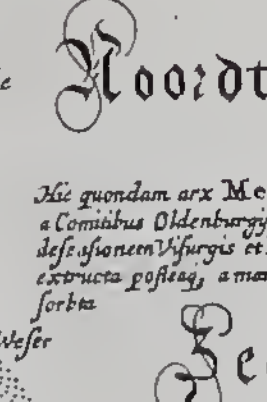 Noordt
Hic quondam arx Me
a Comitibus Oldenburgi
Visurgis et
extructa posteaq, a mar
sorbta
Weser
Se